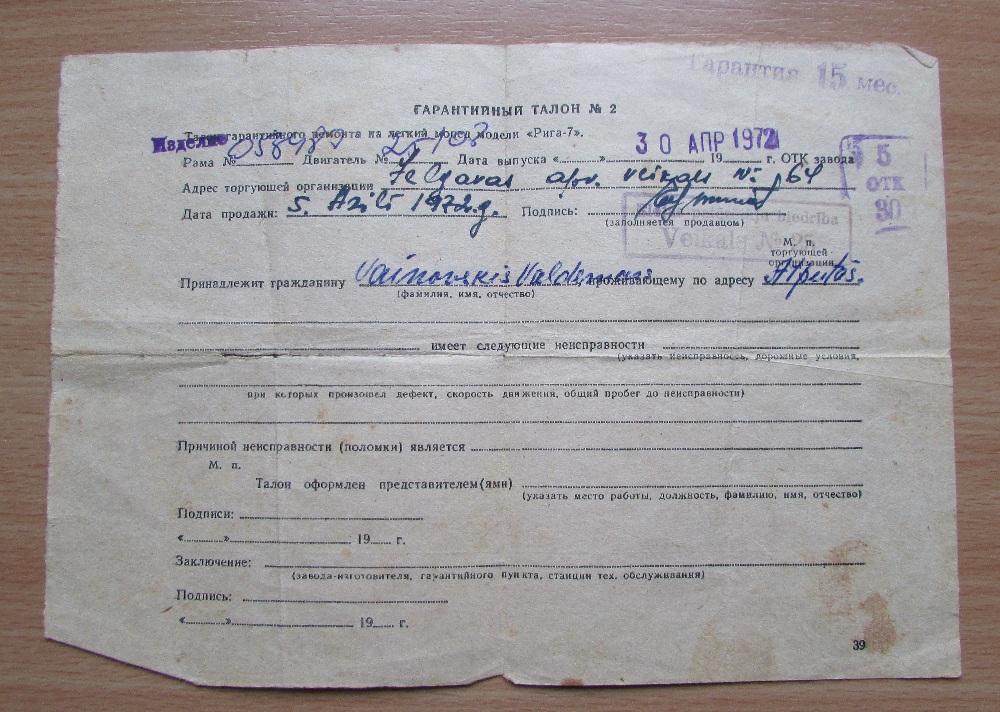 Гарантия 15 мес.
ГАРАНТИЙНЫЙ ТАЛОН № 2
Талон гарантийного ремонта на легкий мопед модели «Рига-7».
Изделие
Рама № Двигатель № Дата выпуска «........» 30 АПР 1972 19...... г. ОТК завода
5
ОТК
30
Адрес торгующей организации Jelgavas veikals № 64
Дата продажи: 5. 1972.g. Подпись:
(заполняется продавцом)
Veikals №
М. п.
торгующей
организации
Принадлежит гражданину Valdemars проживающему по адресу
(фамилия, имя, отчество)
имеет следующие неисправности
(указать неисправность, дорожные условия,
при которых произошел дефект, скорость движения, общий пробег до неисправности)
Причиной неисправности (поломки) является
М. п.
Талон оформлен представителем(ями)
(указать место работы, должность, фамилию, имя, отчество)
Подписи:
«........» 19...... г.
Заключение:
(завода-изготовителя, гарантийного пункта, станции тех. обслуживания)
Подпись:
«........» 19...... г.
39